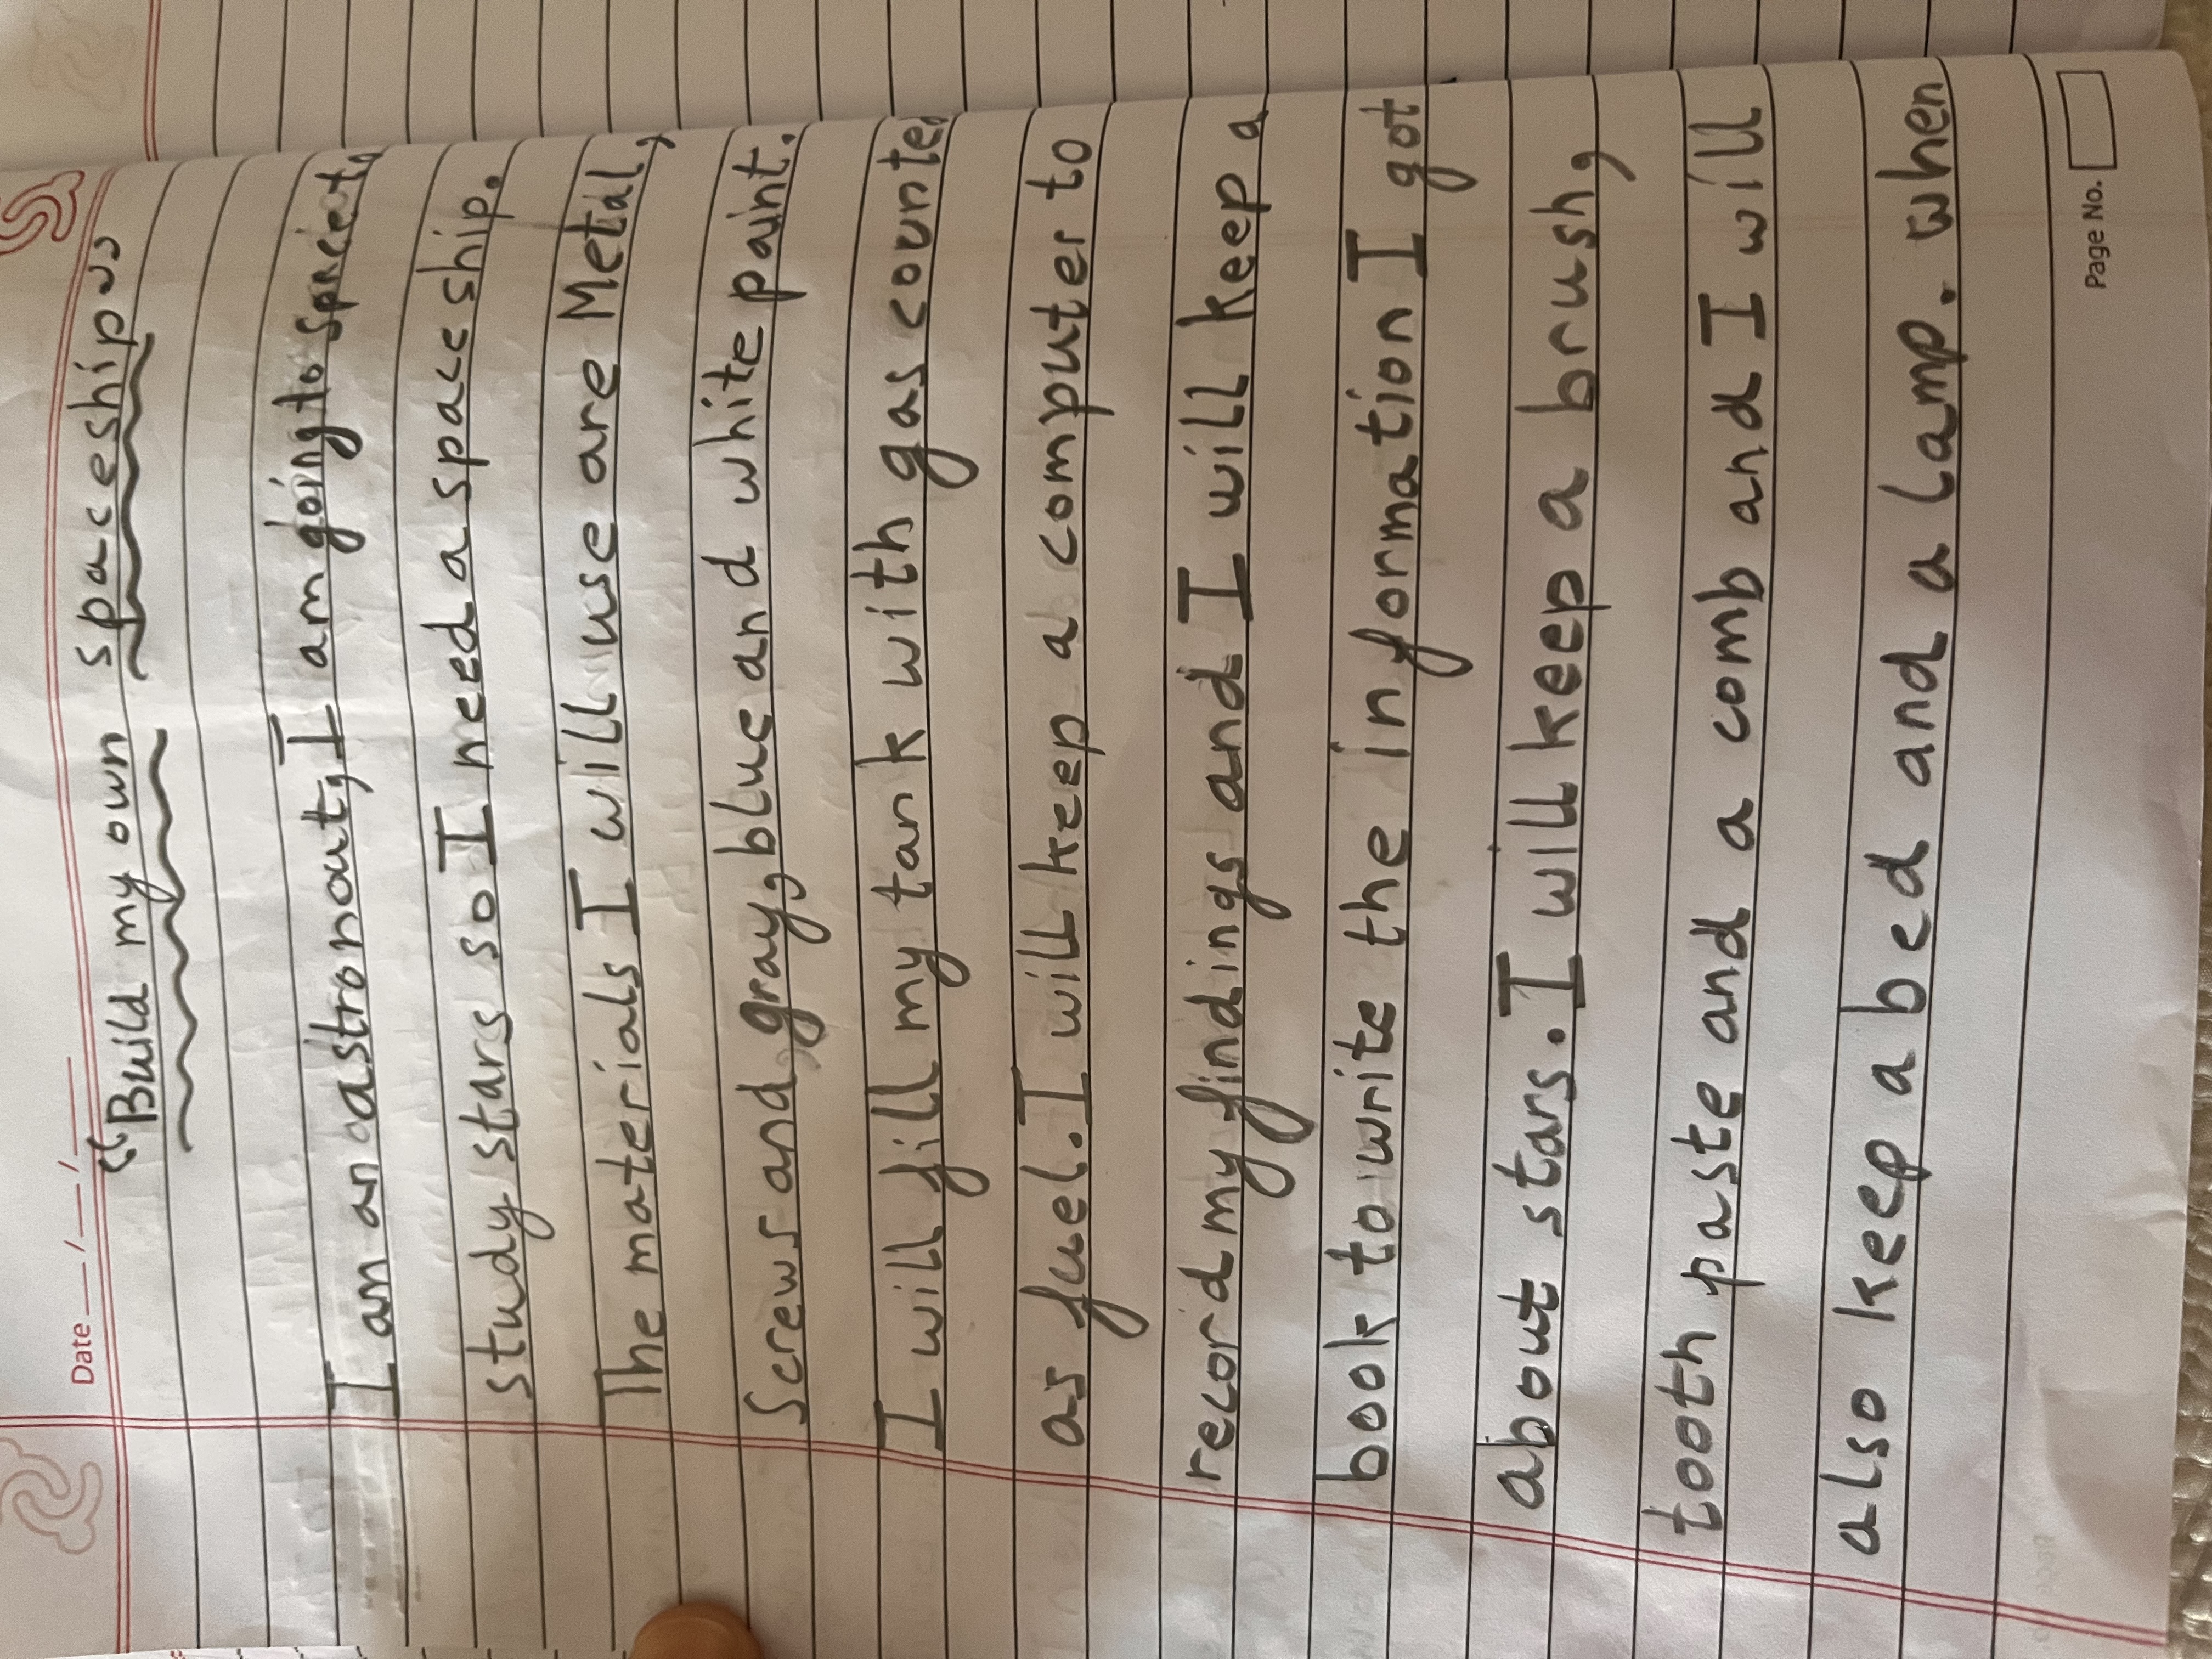 Date __/__/__
"Build my own spaceship"
I am an astronaut, I am going to space to
study stars so I need a space ship.
The materials I will use are Metal,
Screws and gray, blue and white paint.
I will fill my tank with gas counted
as fuel. I will keep a computer to
record my findings and I will keep a
book to write the information I got
about stars. I will keep a brush,
tooth paste and a comb and I will
also keep a bed and a lamp. when
Page No.